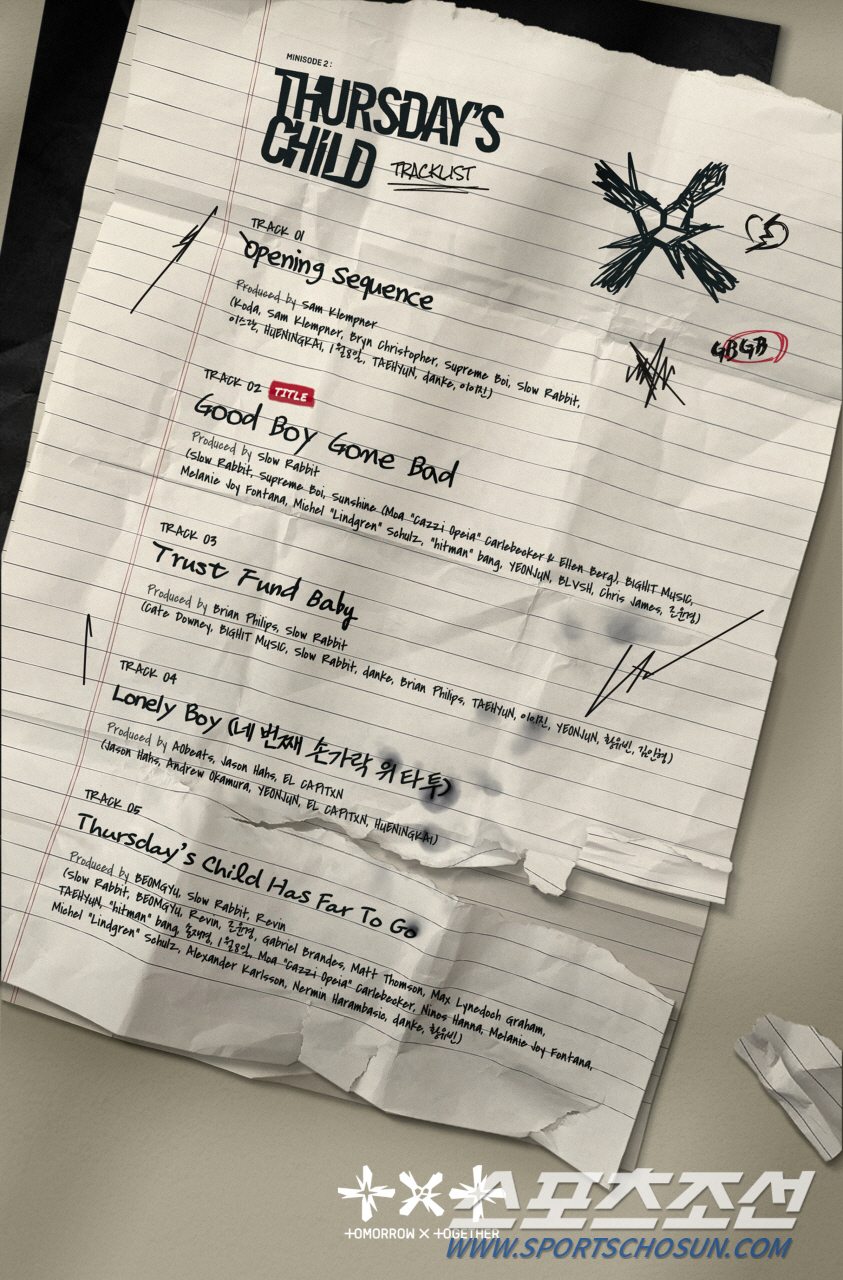 MINISODE 2 :
THURSDAY'S
CHILD TRACKLIST
TRACK 01
Opening Sequence
Produced by Sam Klempner
(Koda, Sam Klempner, Bryn Christopher, Supreme Boi, Slow Rabbit,
이스란, HUENINGKAI, 1월8일, TAEHYUN, danke, 이이진)
GBGB
TRACK 02 TITLE
Good Boy Gone Bad
Produced by Slow Rabbit
(Slow Rabbit, Supreme Boi, Sunshine (Moa "Cazzi Opeia" Carlebecker & Ellen Berg), BIGHIT MUSIC,
Melanie Joy Fontana, Michel "Lindgren" Schulz, "hitman" bang, YEONJUN, BLVSH, Chris James, 조윤경)
TRACK 03
Trust Fund Baby
Produced by Brian Philips, Slow Rabbit
(Cate Downey, BIGHIT MUSIC, Slow Rabbit, danke, Brian Philips, TAEHYUN, 이이진, YEONJUN, 황유빈, 김안형)
TRACK 04
Lonely Boy (네 번째 손가락 위 타투)
Produced by AObeats, Jason Hahs, EL CAPITXN
(Jason Hahs, Andrew Okamura, YEONJUN, EL CAPITXN, HUENINGKAI)
TRACK 05
Thursday's Child Has Far To Go
Produced by BEOMGYU, Slow Rabbit, Revin
(Slow Rabbit, BEOMGYU, Revin, 조윤경, Gabriel Brandes, Matt Thomson, Max Lynedoch Graham,
TAEHYUN, "hitman" bang, 1월8일, Moa "Cazzi Opeia" Carlebecker, Ninos Hanna, Melanie Joy Fontana,
Michel "Lindgren" Schulz, Alexander Karlsson, Nermin Harambasic, danke, 황유빈)
TOMORROW X TOGETHER
스포츠조선
WWW.SPORTSCHOSUN.COM